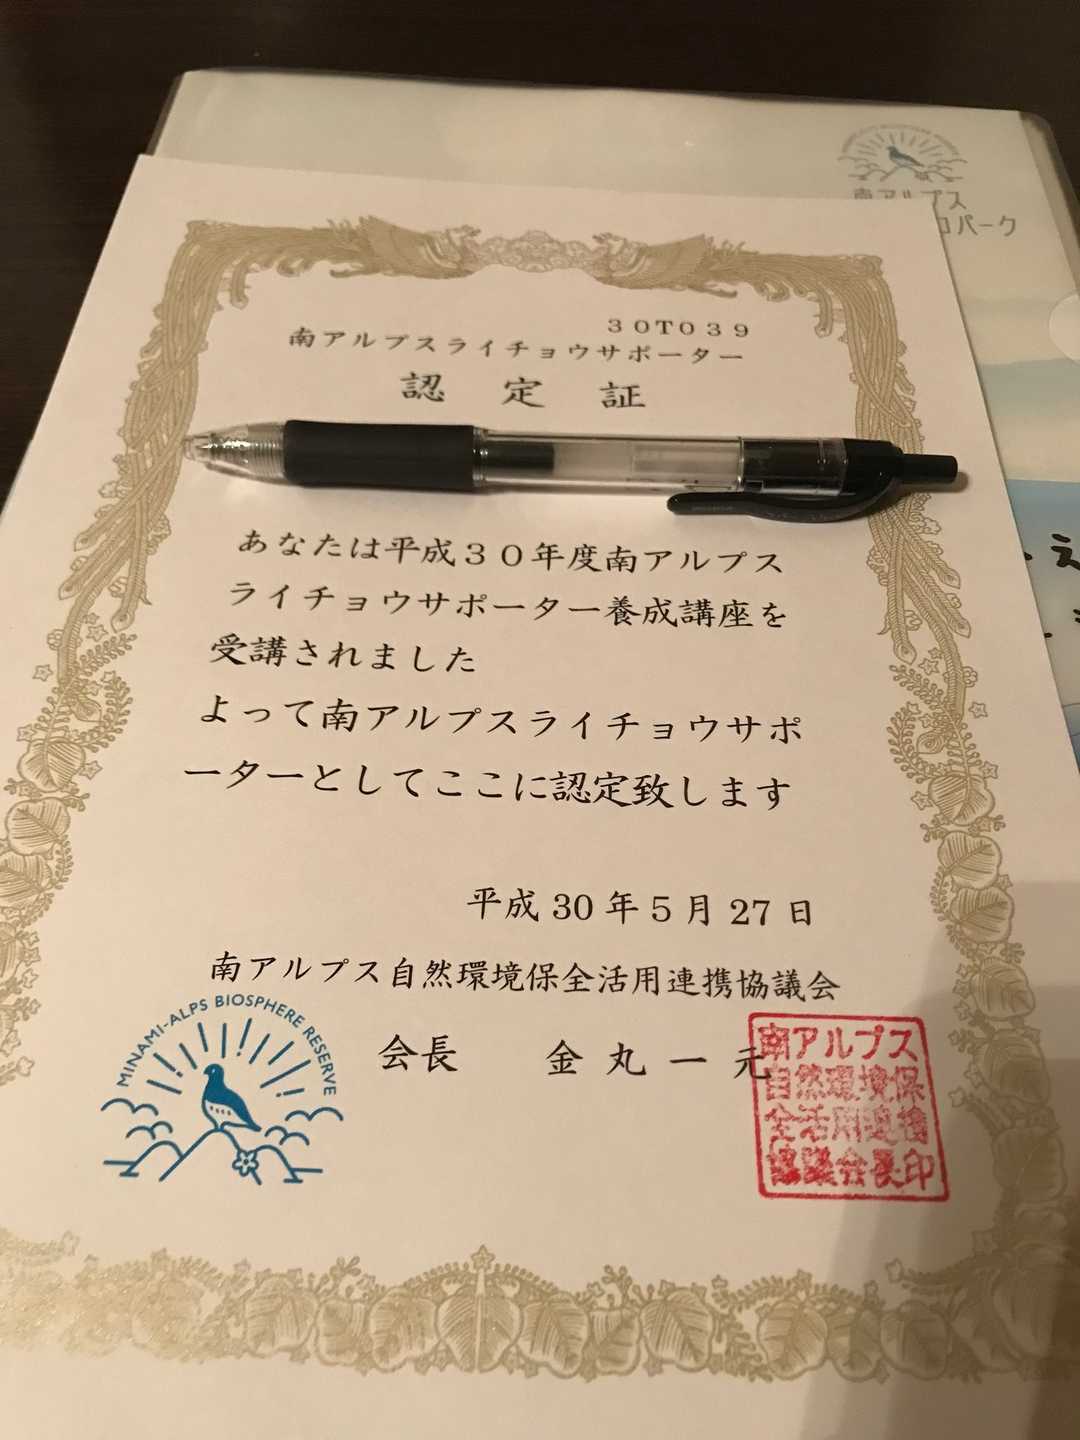 MINAMI-ALPS BIOSPHERE RESERVE
南アルプス
コパーク
３０T０３９
南アルプスライチョウサポーター
認定証
あなたは平成３０年度南アルプス
ライチョウサポーター養成講座を
受講されました
よって南アルプスライチョウサポ
ーターとしてここに認定致します
平成 30 年 5 月 27 日
南アルプス自然環境保全活用連携協議会
会長 金丸一元
MINAMI-ALPS BIOSPHERE RESERVE
南アルプス
自然環境保
全活用連携
協議会長印